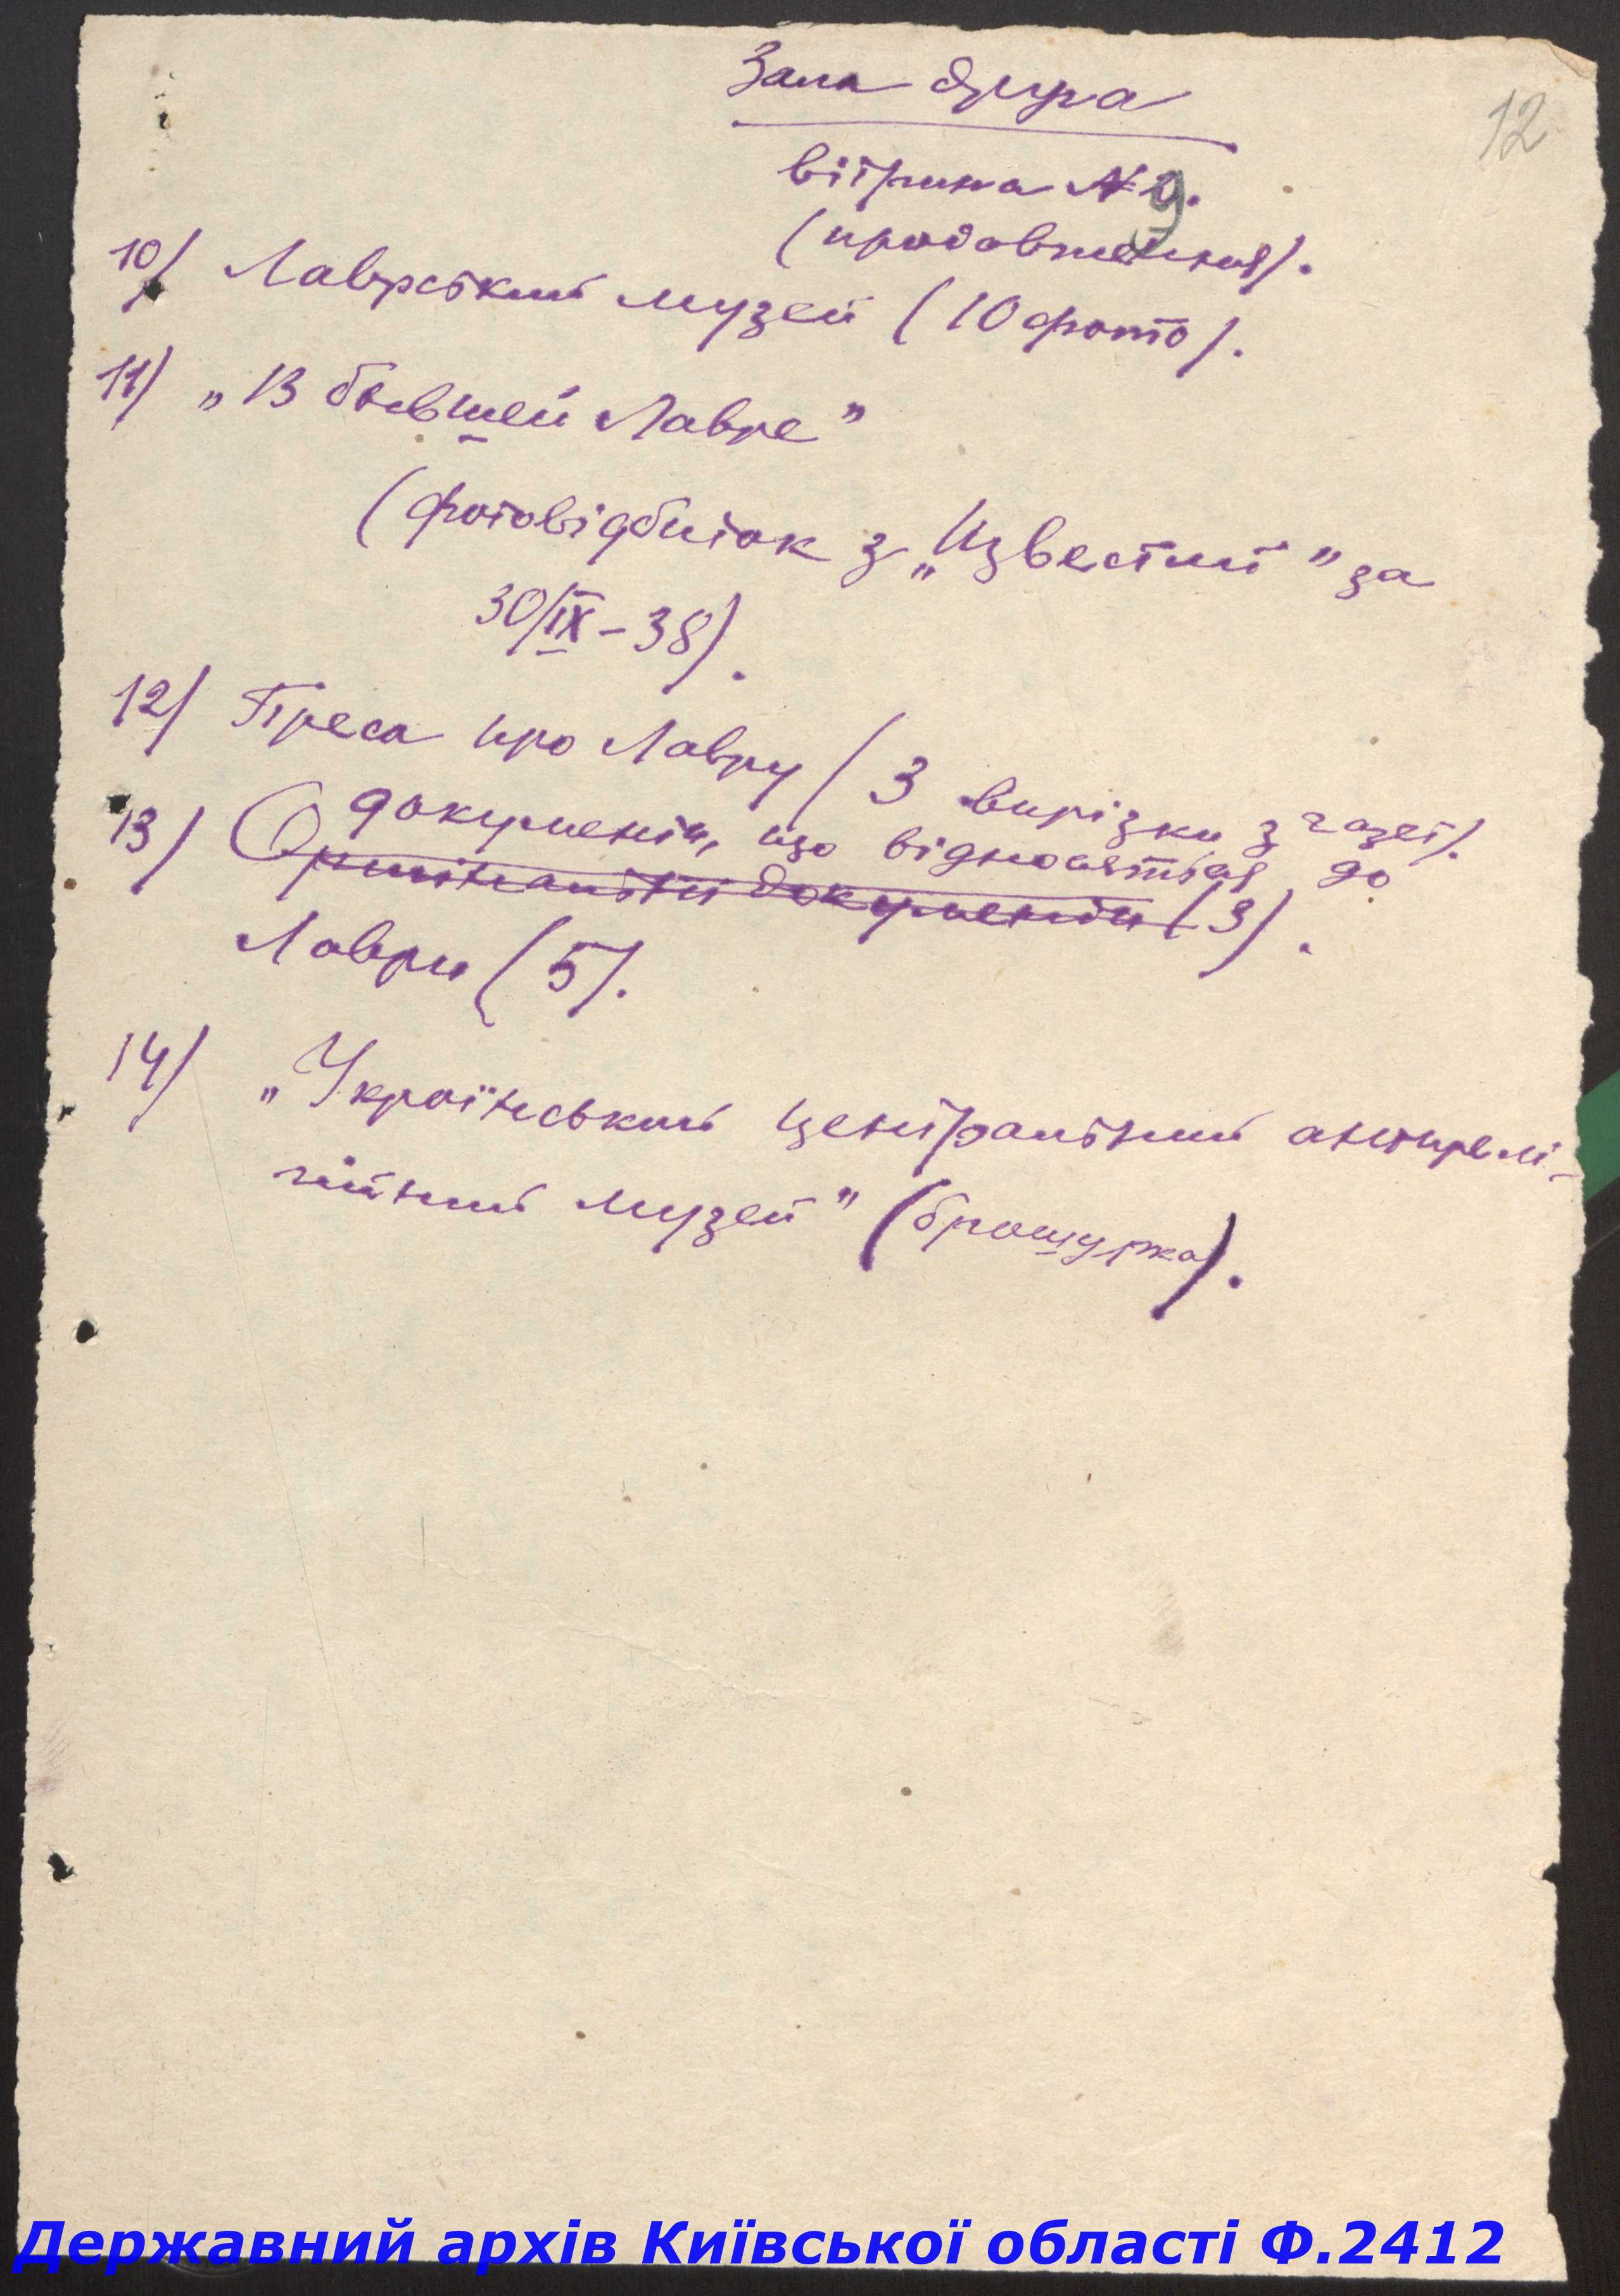 Зала друга
12
вітрина № 9.
(продовження).
10) Лаврський музей (10 фото).
11) „В бывшей Лавре"
(фотовідбиток з „Известий" за
30/IX – 38).
12) Преса про Лавру (3 вирізки з газет).
документи, що відносяться до
13) Оригінальні документи (3).
Лаври (5).
14) „Український центральний антирелі-
гійний музей" (брошурка).
Державний архів Київської області Ф.2412